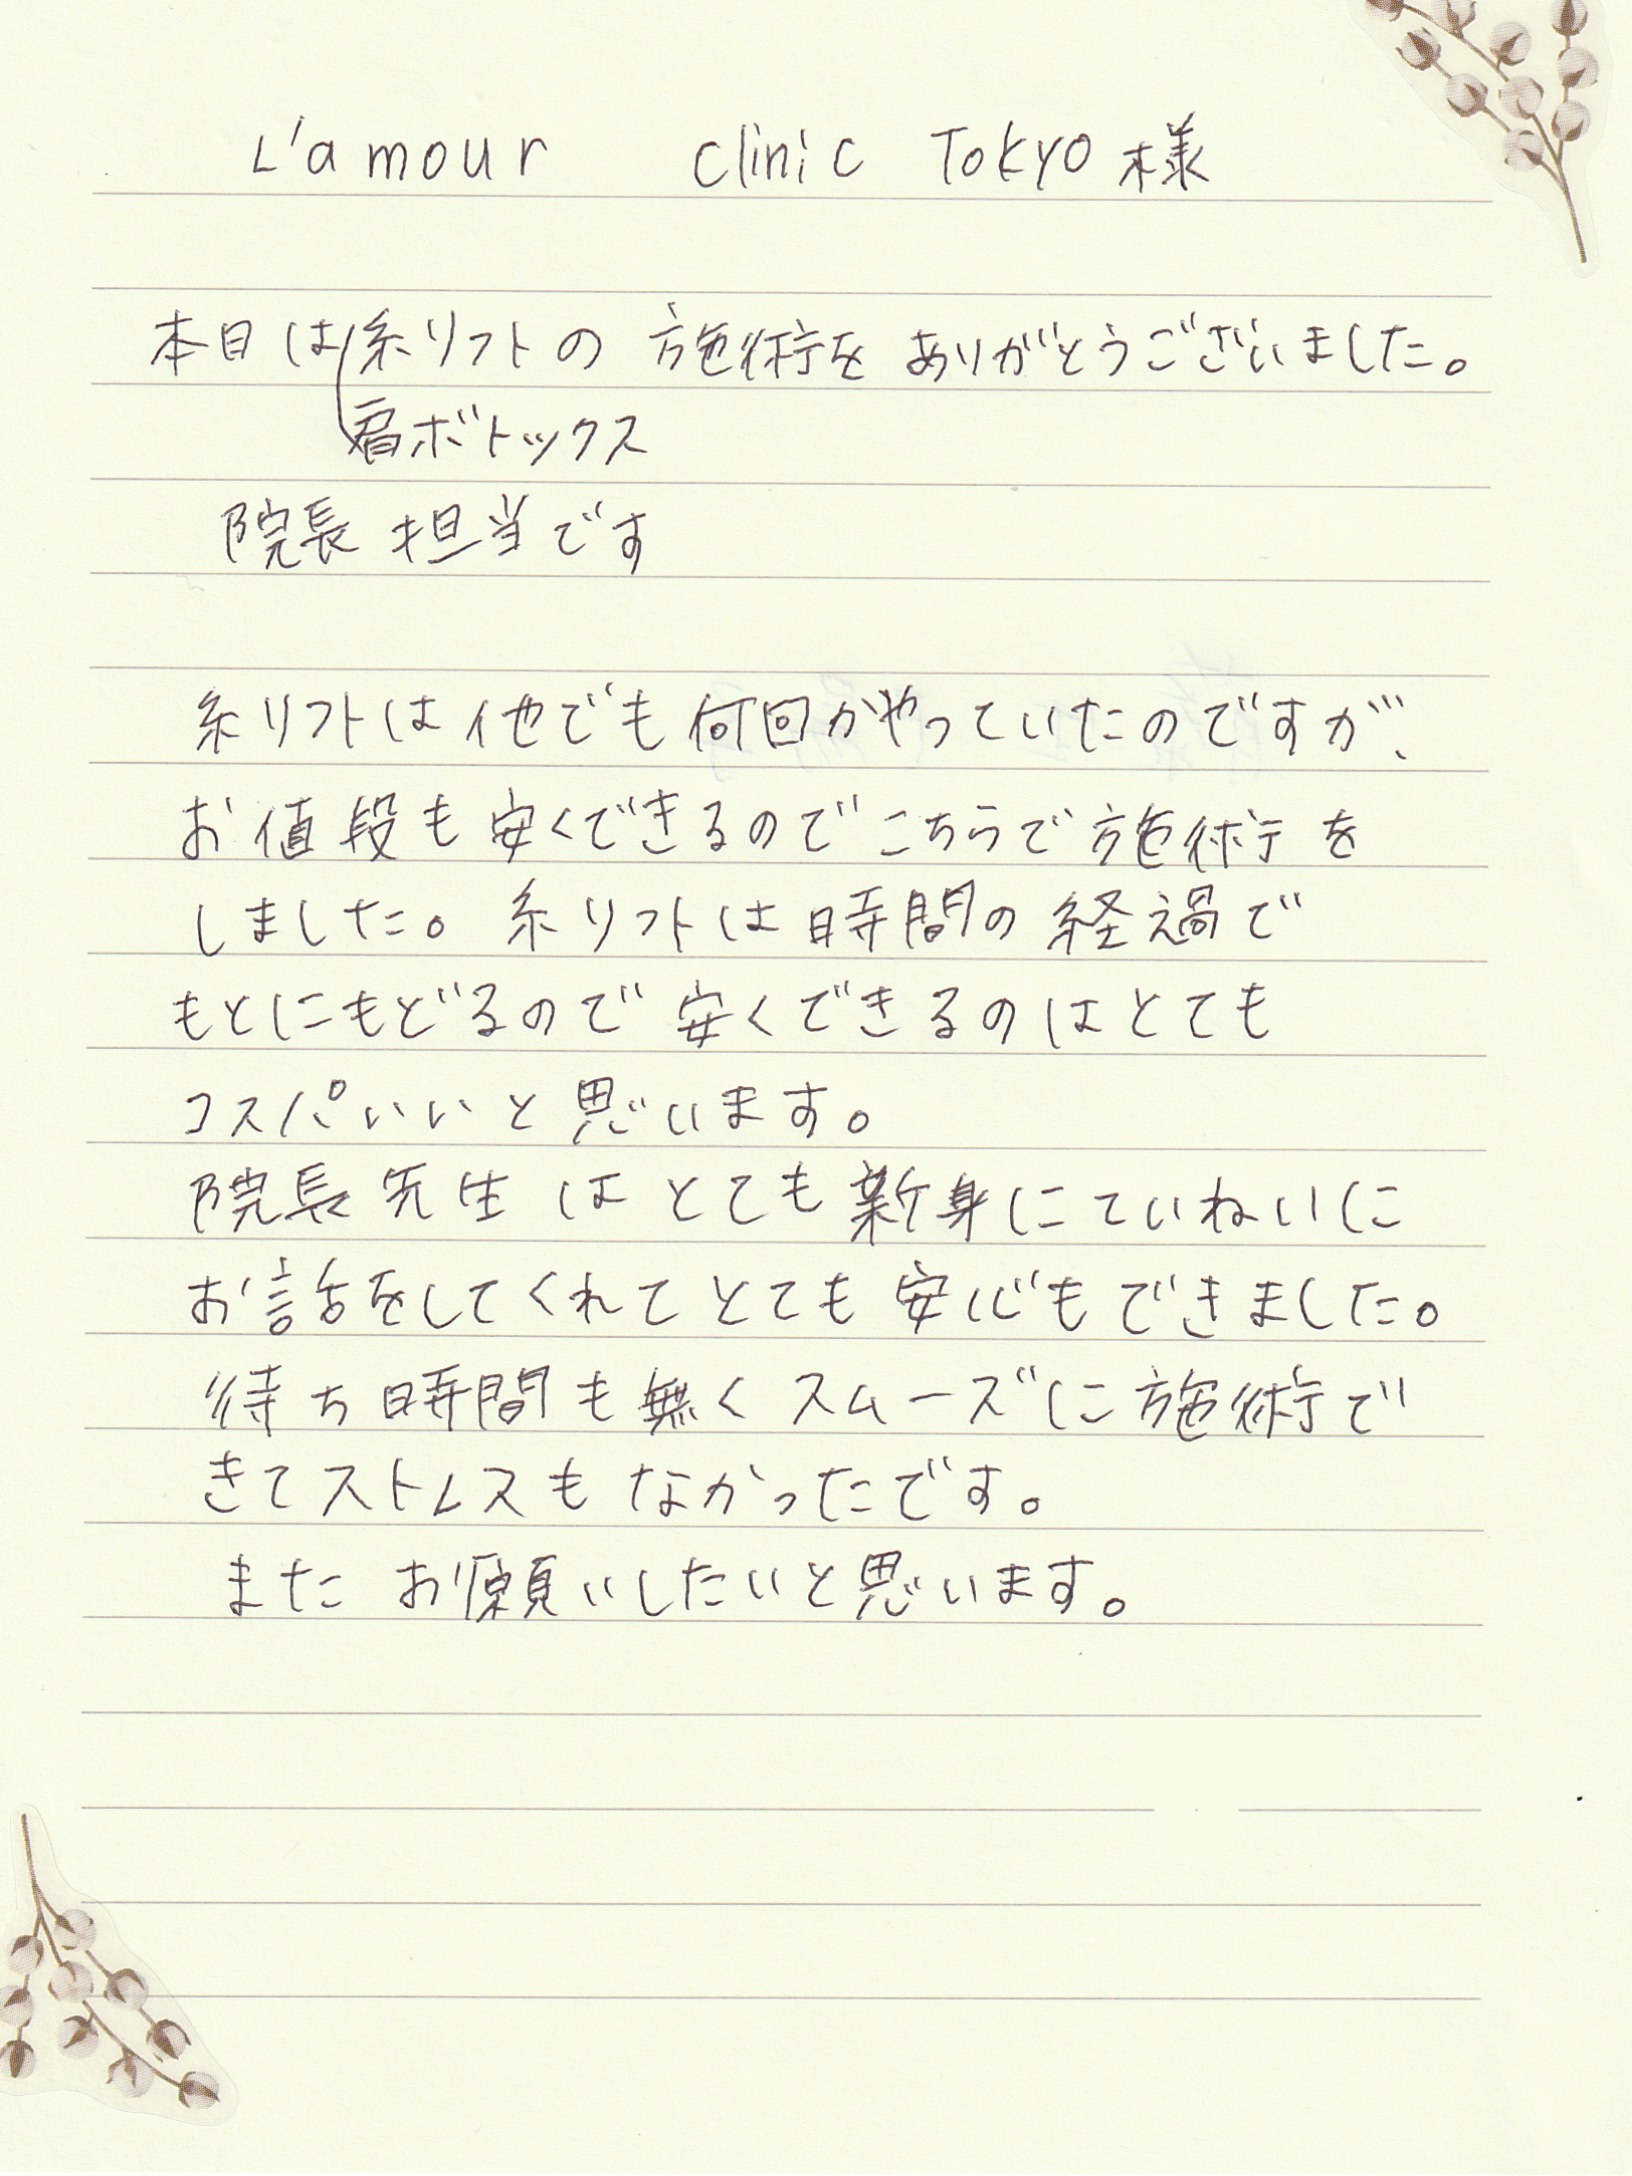 L'amour clinic Tokyo 様
本日は糸リフトの施術をありがとうございました。
肩ボトックス
院長担当です
糸リフトは他でも何回かやっていたのですが、
お値段も安くできるのでこちらで施術を
しました。糸リフトは時間の経過で
もとにもどるので安くできるのはとても
コスパいいと思います。
院長先生はとても親身にていねいに
お話をしてくれてとても安心もできました。
待ち時間も無くスムーズに施術で
きてストレスもなかったです。
またお願いしたいと思います。